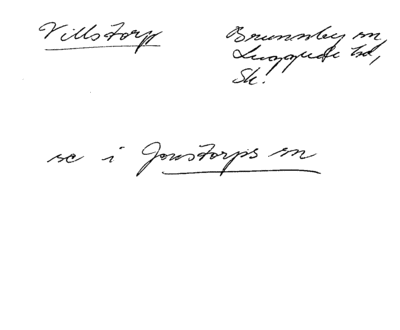 Villstorp
Brunnsby sn,
Luggude hd,
Sk.
se i Jonstorps sn